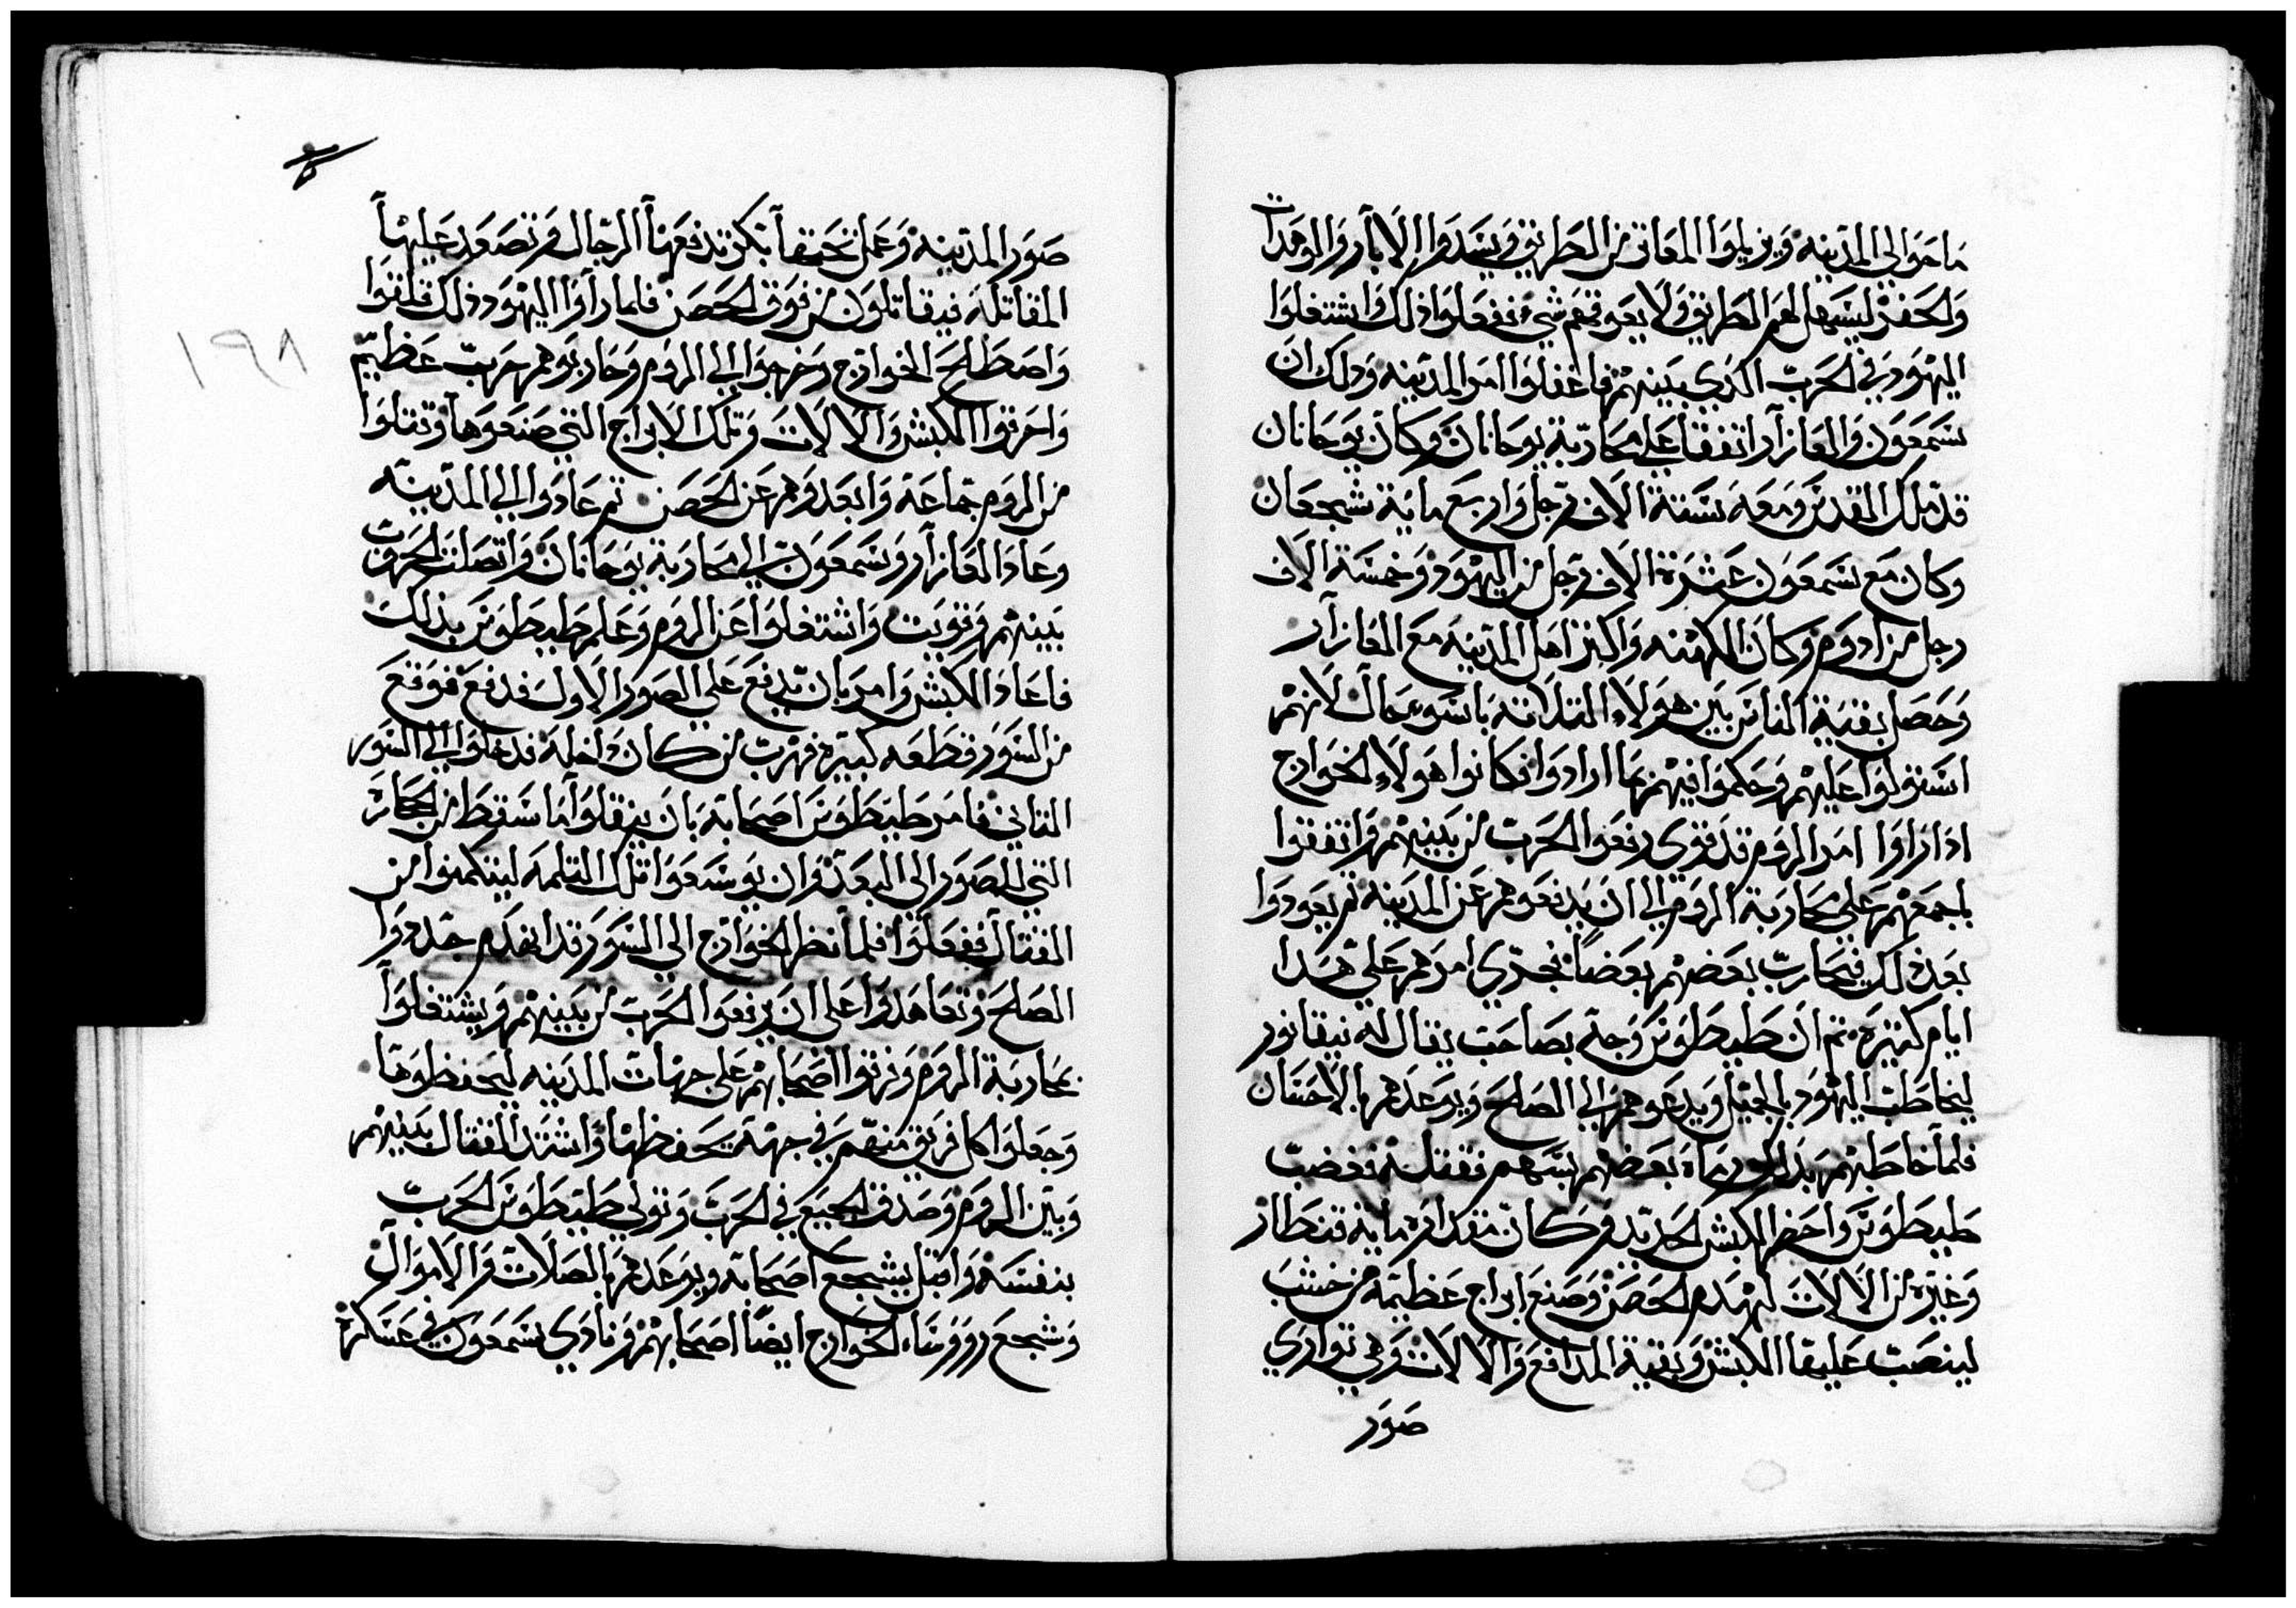 ما حوالي المدينه ويزيلوا المعاثر من الطريق ويسدوا الابار والوهدات
والحفر ليسهل لهم الطريق ولا يعوقهم شي ففعلوا ذلك واشتغلوا
اليهود في الحرب الذي بينهم فاغفلوا امر المدينه وذلك ان
سمعون والعازار اتفقا على محاربة يوحانان وكان يوحانان
قد ملك القدس ومعه ستة الاف رجل واربع ماية شجعان
وكان مع سمعون عشرة الاف رجل من اليهود وخمسة الاف
رجل من ادوم وكان الكهنه واكثر اهل المدينه مع العازار
وحصل بقية الناس بين هولاء الثلاثه باسوء حال لانهم
استولوا عليهم وحكموا فيهم بما ارادوا فكانوا هولاء الخوارج
اذا راوا امر الروم قد قوي رفعوا الحرب من بينهم واتفقوا
باجمعهم على محاربة الروم الى ان يدفعوهم عن المدينه ثم يعودوا
بعد ذلك فيحارب بعضهم بعضاً فجري امرهم على هذا
ايام كثيره ثم ان طيطوس وجه بصاحب يقال له نيقانور
ليخاطب اليهود بالجميل ويدعوهم الى الصلح ويوعدهم بالاحسان
فلما خاطبهم بذلك رماه بعضهم بسهم فقتله فغضب
طيطوس واحضر الكبش الحديد وكان مقداره ماية قنطار
وغيره من الالات لهدم الحصن وصنع ابراج عظيمه من خشب
لينصب عليها الكبش وبقية المدافع والالات وهي توازي
صور
صور المدينه وعمل تحتها بكر تدفعها الرجال وتصعد عليها
المقاتله فيقاتلون من فوق الحصن فلما راوا اليهود ذلك قلقوا
واصطلح الخوارج وخرجوا الى الروم وحاربوهم حرب عظيم
واحرقوا الكبش والالات وتلك الابراج التي صنعوها وقتلوا
من الروم جماعة وابعدوهم عن الحصن ثم عادوا الى المدينه
وعاد العازار وسمعون الى محاربة يوحانان واتصلت الحروب
بينهم وقويت واشتغلوا عن الروم وعلم طيطوس بذلك
فاعاد الكبش وامر بان يدفع على الصور الاول فدفع فوقع
من السور قطعه كبيره فهرب من كان داخله فدخلوا الى السور
الثاني فامر طيطوس اصحابه بان ينقلوا ما سقط من الحجاره
التي للصور الى البعد وان يوسعوا تلك الثلمه ليتمكنوا من
القتال ففعلوا فلما نظر الخوارج الى السور قد انهدم جددوا
الصلح وتعاهدوا على ان يرفعوا الحرب من بينهم ويشتغلوا
بمحاربة الروم ورتبوا اصحابهم على جهات المدينه ليحفظوها
وجعلوا كل فريق منهم في جهة يحفظها واشتد القتال بينهم
وبين الروم وصدق الجميع في الحرب وتولى طيطوس الحرب
بنفسه واقبل يشجع اصحابه ويوعدهم بالصلات والاموال
وشجع رووساء الخوارج ايضاً اصحابهم ونادي سمعون في عسكره
١٩٨